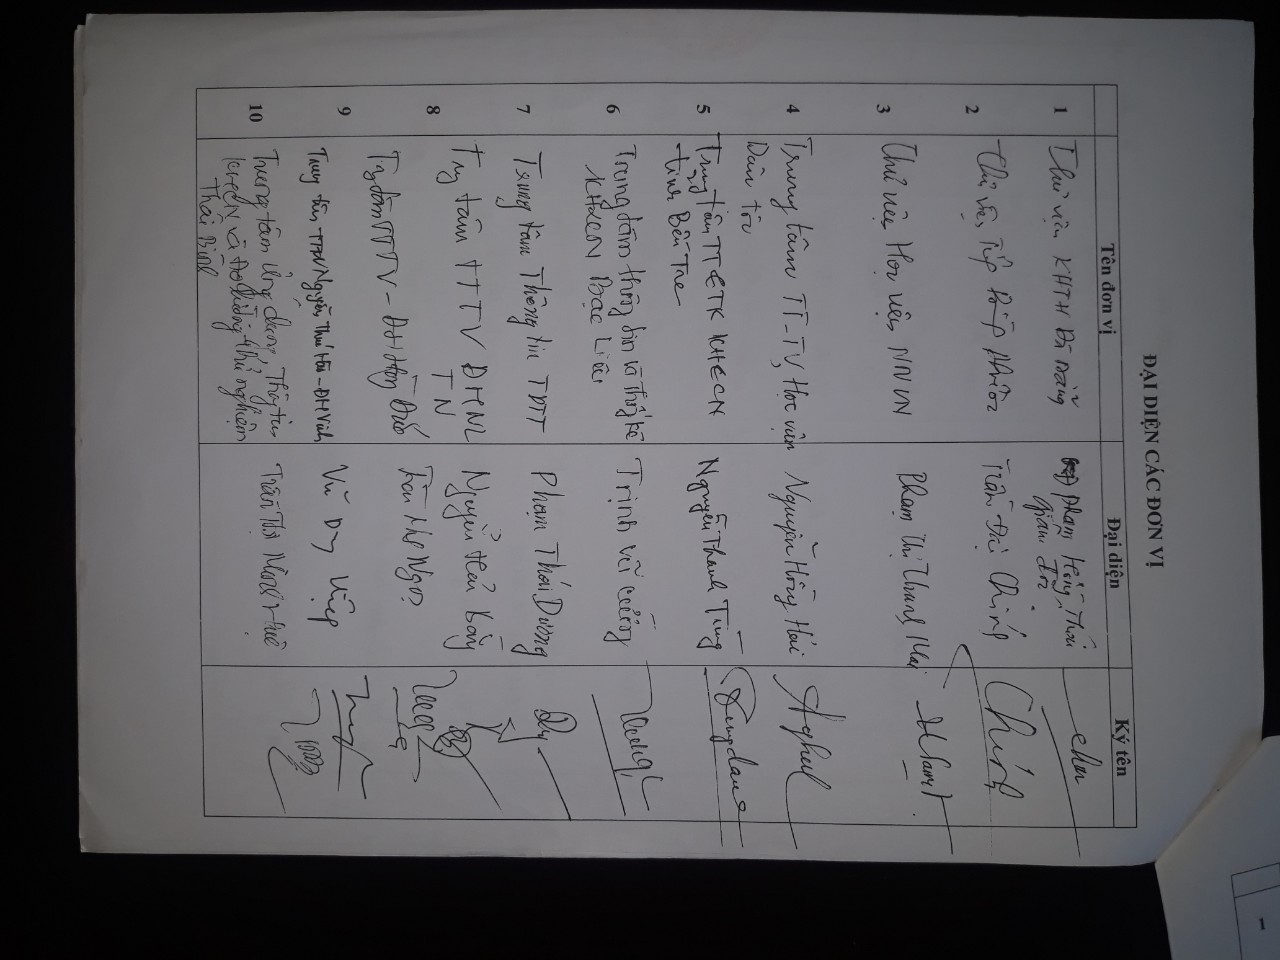 ĐẠI DIỆN CÁC ĐƠN VỊ
Tên đơn vị
Đại diện
Ký tên
1
Thư viện KHTH Đà Nẵng
Phạm Hồng Thái
Giám đốc
2
Thư viện
Trần Thị Chính
Chính
3
Thư viện Học viện NNVN
Phạm Thị Thanh Mai
4
Trung tâm TT-TV, Học viện
Dân tộc
Nguyễn Hồng Hải
5
Trung tâm TTTK KH&CN
tỉnh Bến Tre
Nguyễn Thanh Tùng
6
Trung tâm thông tin và thống kê
KH&CN Bạc Liêu
Trịnh Vũ Cường
7
Trung tâm Thông tin TDTT
Phạm Thái Dương
8
Trg tâm TTTV ĐHNL
TN
Nguyễn Hữu
Trg tâm TTTV - ĐH Hồng Đức
9
Trung tâm Nguyễn Thúc Hào - ĐH Vinh
Vũ Duy
10
Trung tâm ứng dụng, Thông tin
KH&CN và Đo lường thử nghiệm
Thái Bình
Trần Thị
1